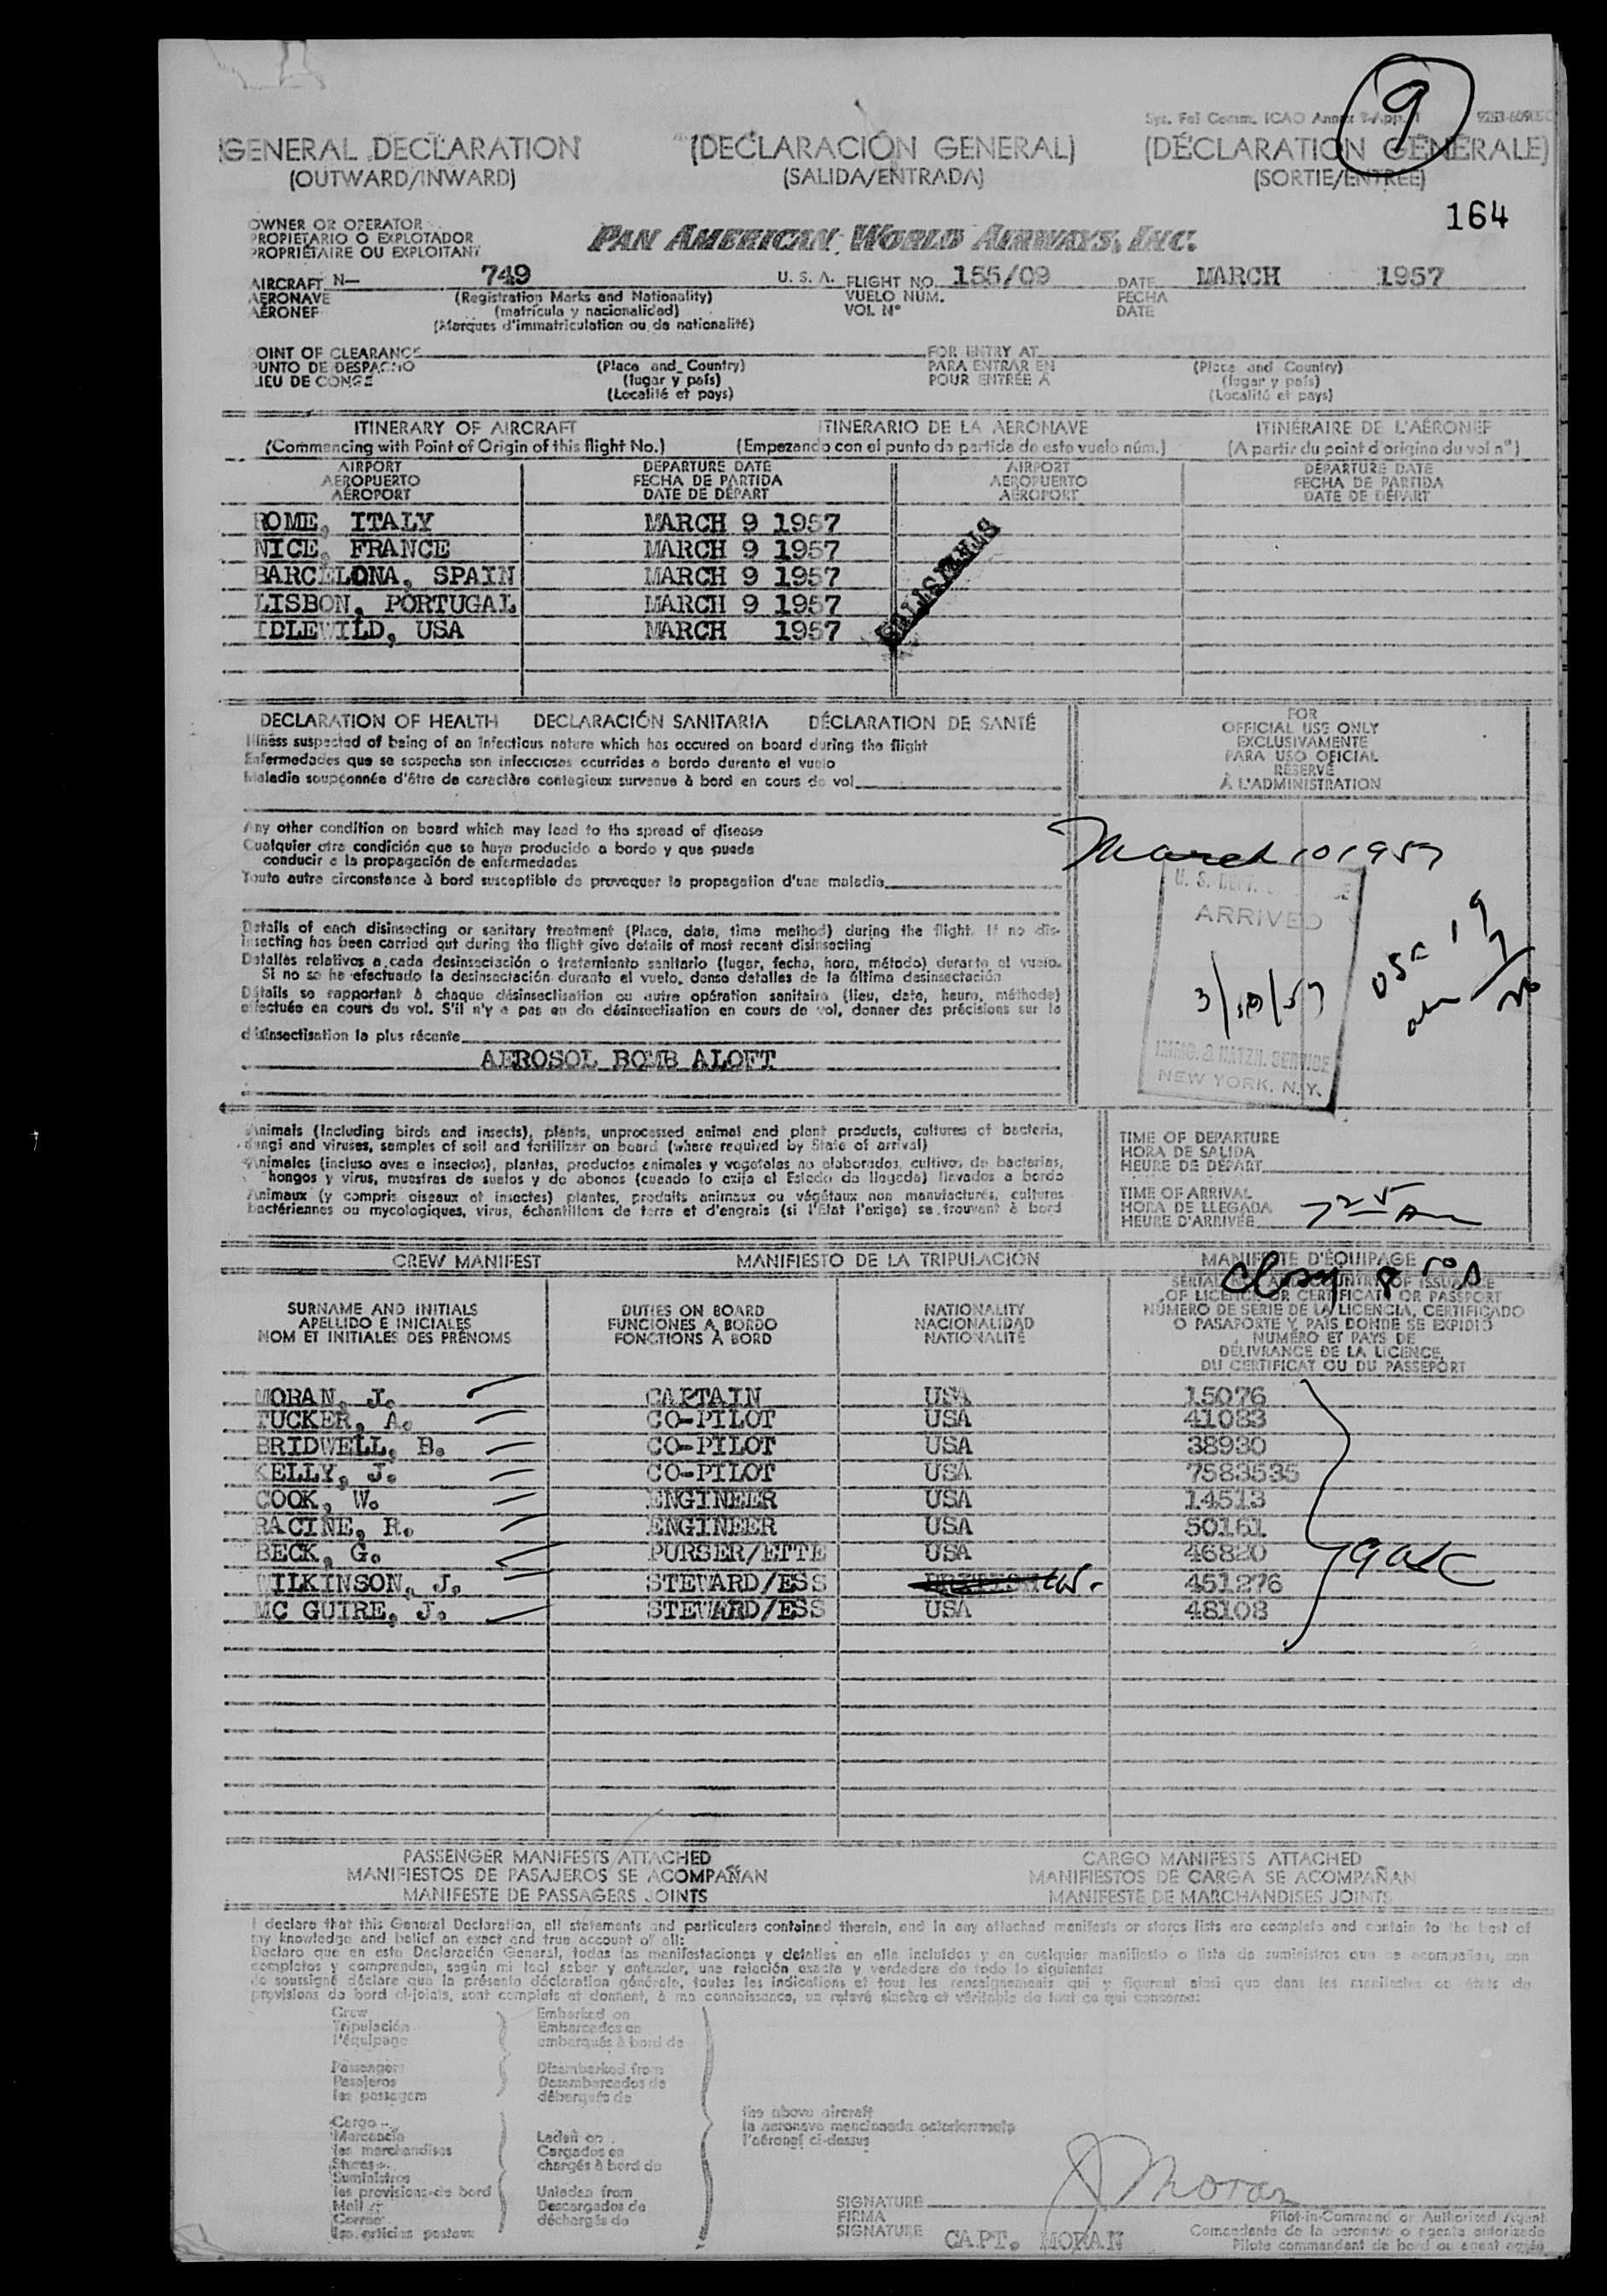 9
Sys. Fal Comm. ICAO Annex 9-App. 1
GENERAL DECLARATION (DECLARACIÓN GENERAL) (DÉCLARATION GÉNÉRALE)
(OUTWARD/INWARD) (SALIDA/ENTRADA) (SORTIE/ENTRÉE)
164
OWNER OR OPERATOR
PROPIETARIO O EXPLOTADOR
PROPRIÉTAIRE OU EXPLOITANT
PAN AMERICAN WORLD AIRWAYS, INC.
AIRCRAFT N— 749 U. S. A. FLIGHT NO. 155/09 DATE MARCH 1957
AERONAVE (Registration Marks and Nationality) VUELO NÚM. FECHA
AÉRONEF (matrícula y nacionalidad) VOL Nº DATE
(Marques d'immatriculation ou de nationalité)
POINT OF CLEARANCE FOR ENTRY AT
PUNTO DE DESPACHO (Place and Country) PARA ENTRAR EN (Place and Country)
LIEU DE CONGÉ (lugar y país) POUR ENTRÉE A (lugar y país)
(Localité et pays) (Localité et pays)
ITINERARY OF AIRCRAFT ITINERARIO DE LA AERONAVE ITINÉRAIRE DE L'AÉRONEF
(Commencing with Point of Origin of this flight No.) (Empezando con el punto de partida de este vuelo núm.) (A partir du point d'origine du vol nº)
AIRPORT DEPARTURE DATE AIRPORT DEPARTURE DATE
AEROPUERTO FECHA DE PARTIDA AEROPUERTO FECHA DE PARTIDA
AÉROPORT DATE DE DÉPART AÉROPORT DATE DE DÉPART
ROME, ITALY MARCH 9 1957
NICE, FRANCE MARCH 9 1957
BARCELONA, SPAIN MARCH 9 1957
LISBON, PORTUGAL MARCH 9 1957
IDLEWILD, USA MARCH 1957
DECLARATION OF HEALTH DECLARACIÓN SANITARIA DÉCLARATION DE SANTÉ
Illness suspected of being of an infectious nature which has occured on board during the flight
Enfermedades que se sospecha son infecciosas ocurridas a bordo durante el vuelo
Maladie soupçonnée d'être de caractère contagieux survenue à bord en cours de vol
FOR
OFFICIAL USE ONLY
EXCLUSIVAMENTE
PARA USO OFICIAL
RÉSERVÉ
À L'ADMINISTRATION
Any other condition on board which may lead to the spread of disease
Cualquier otra condición que se haya producido a bordo y que pueda
conducir a la propagación de enfermedades
Toute autre circonstance à bord susceptible de provoquer la propagation d'une maladie
March 10 1957
U. S. DEPT.
ARRIVED
3/10/57
IMMG. & NATZN. SERVICE
NEW YORK, N.Y.
Details of each disinsecting or sanitary treatment (Place, date, time method) during the flight. If no dis-
insecting has been carried out during the flight give details of most recent disinsecting
Detalles relativos a cada desinseciación o tratamiento sanitario (lugar, fecha, hora, método) durante el vuelo.
Si no se ha efectuado la desinsectación durante el vuelo, dense detalles de la última desinsectación
Détails se rapportant à chaque désinsectisation ou autre opération sanitaire (lieu, date, heure, méthode)
effectuée en cours de vol. S'il n'y a pas eu de désinsectisation en cours de vol, donner des précisions sur la
désinsectisation la plus récente
AEROSOL BOMB ALOFT
Animals (Including birds and insects), plants, unprocessed animal and plant products, cultures of bacteria,
fungi and viruses, samples of soil and fertilizer on board (where required by State of arrival)
Animales (incluso aves e insectos), plantas, productos animales y vegetales no elaborados, cultivos de bacterias,
hongos y virus, muestras de suelos y de abonos (cuando lo exija el Estado de llegada) llevados a bordo
Animaux (y compris oiseaux et insectes) plantes, produits animaux ou végétaux non manufacturés, cultures
bactériennes ou mycologiques, virus, échantillons de terre et d'engrais (si l'État l'exige) se trouvant à bord
TIME OF DEPARTURE
HORA DE SALIDA
HEURE DE DÉPART
TIME OF ARRIVAL
HORA DE LLEGADA
HEURE D'ARRIVÉE 725 Am
CREW MANIFEST MANIFIESTO DE LA TRIPULACIÓN MANIFESTE D'ÉQUIPAGE
SURNAME AND INITIALS DUTIES ON BOARD NATIONALITY
APELLIDO E INICIALES FUNCIONES A BORDO NACIONALIDAD
NOM ET INITIALES DES PRÉNOMS FONCTIONS À BORD NATIONALITÉ
SERIAL NO. AND COUNTRY OF ISSUANCE
OF LICENCE OR CERTIFICATE OR PASSPORT
NÚMERO DE SERIE DE LA LICENCIA, CERTIFICADO
O PASAPORTE Y PAÍS DONDE SE EXPIDIÓ
NUMÉRO ET PAYS DE
DÉLIVRANCE DE LA LICENCE,
DU CERTIFICAT OU DU PASSEPORT
MORAN, J. CAPTAIN USA 15076
TUCKER, A. CO-PILOT USA 41083
BRIDWELL, B. CO-PILOT USA 38930
KELLY, J. CO-PILOT USA 7583535
COOK, W. ENGINEER USA 14513
RACINE, R. ENGINEER USA 50161
BECK, G. PURSER/ETTE USA 46820
WILKINSON, J. STEWARD/ESS US. 451276
MC GUIRE, J. STEWARD/ESS USA 48108
PASSENGER MANIFESTS ATTACHED CARGO MANIFESTS ATTACHED
MANIFIESTOS DE PASAJEROS SE ACOMPAÑAN MANIFIESTOS DE CARGA SE ACOMPAÑAN
MANIFESTE DE PASSAGERS JOINTS MANIFESTE DE MARCHANDISES JOINTS
I declare that this General Declaration, all statements and particulars contained therein, and in any attached manifests or stores lists are complete and contain to the best of
my knowledge and belief an exact and true account of all:
Declaro que en esta Declaración General, todas las manifestaciones y detalles en ella incluidos y en cualquier manifiesto o lista de suministros que se acompañan, son
completos y comprenden, según mi leal saber y entender, una relación exacta y verdadera de todo lo siguiente:
Je soussigné déclare que la présente déclaration générale, toutes les indications et tous les renseignements qui y figurent ainsi que dans les manifestes ou états de
provisions de bord ci-joints, sont complets et donnent, à ma connaissance, un relevé sincère et véritable de tout ce qui concerne:
Crew Embarked on
Tripulación Embarcados en
l'équipage embarqués à bord de
Passengers Disembarked from
Pasajeros Desembarcados de
les passagers débarqués de
the above aircraft
la aeronave mencionada anteriormente
l'aéronef ci-dessus
Cargo
Mercancía Laden on
les marchandises Cargados en
Stores chargés à bord de
Suministros
les provisions de bord Unladen from
Mail Descargados de
Correo déchargés de
les articles postaux
J Moran
SIGNATURE
FIRMA
SIGNATURE CAPT. MORAN
Pilot-in-Command or Authorized Agent
Comandante de la aeronave o agente autorizado
Pilote commandant de bord ou agent agréé